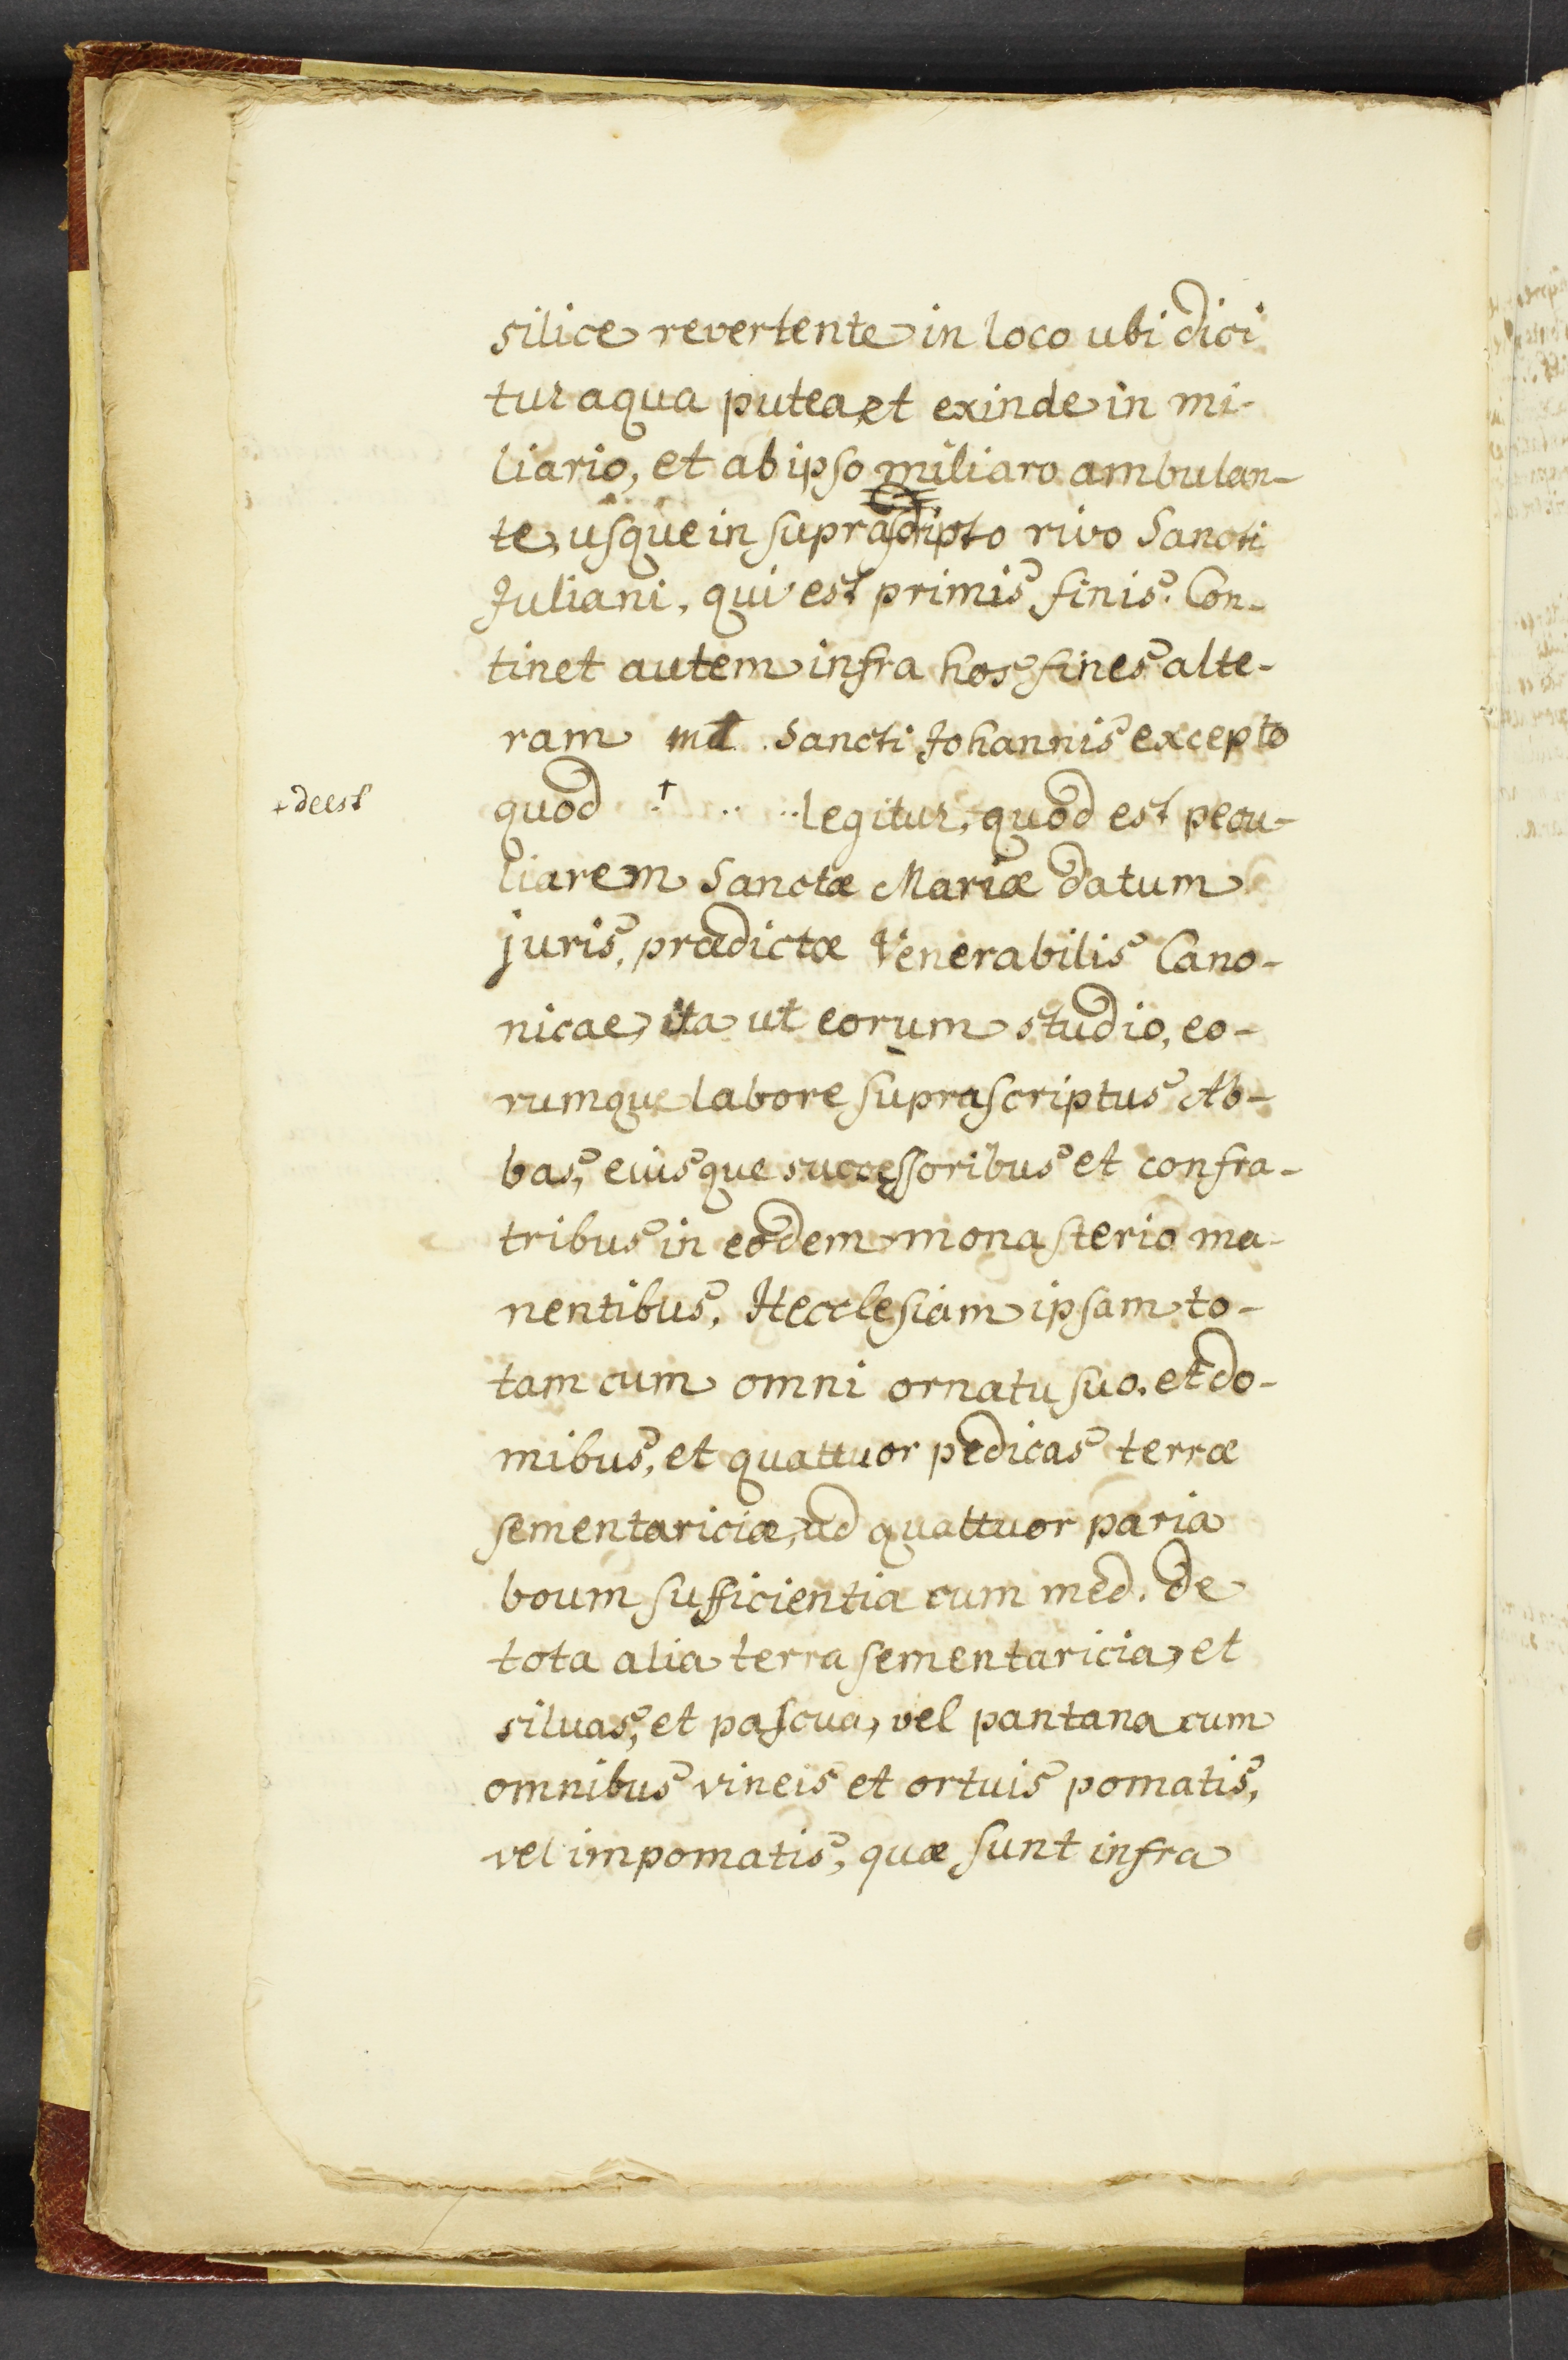 silice revertente in loco ubi dici
tur aqua putea, et exinde in mi-
liario, et ab ipso miliaro ambulan-
te, usque in suprascripto rivo Sancti
Juliani, qui est primis finis. Con-
tinet autem infra hos fines alte-
ram md. Sancti Johannis excepto
+ deest
quod .+ .. ..legitur, quod est pecu-
liarem Sanctæ Mariæ datum
juris, prædictæ Venerabilis Cano-
nicae, ita ut eorum studio, eo-
rumque labore suprascriptus Ab-
bas, eiusque successoribus et confra-
tribus in eodem monasterio ma-
nentibus, Hecclesiam ipsam to-
tam cum omni ornatu suo. et do-
mibus, et quattuor pedicas terræ
sementariciæ, ad quattuor paria
boum sufficientia cum med. de
tota alia terra sementaricia, et
siluas, et pascua, vel pantana cum
omnibus vineis et ortuis pomatis,
vel impomatis, quæ sunt infra